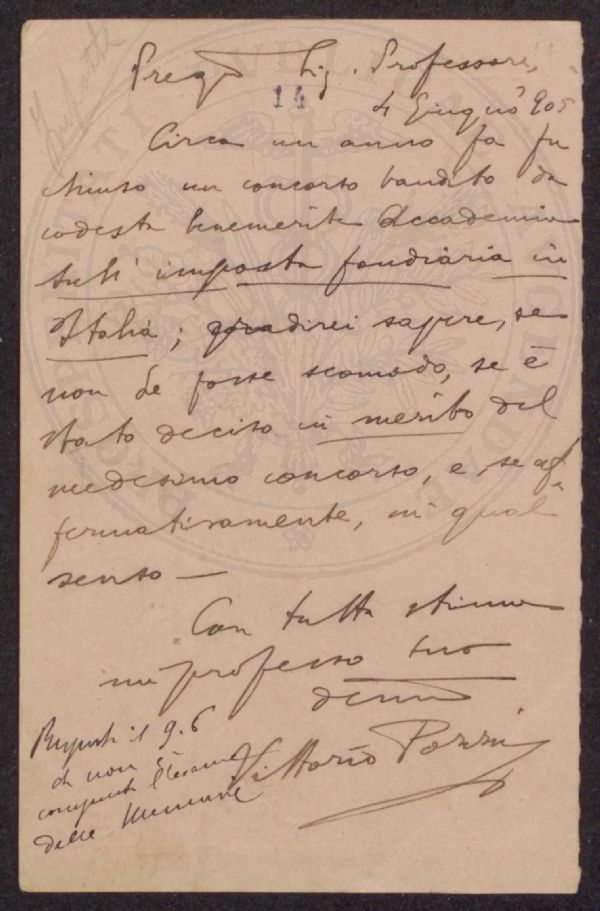 Imposte
Preg.º Sig. Professore,
14
4 Giugno 905
Circa un anno fa fu
chiuso un concorso bandito da
codesta benemerita Accademia
sull'imposta fondiaria in
Italia; gradirei sapere, se
non Le fosse scomodo, se è
stato deciso in merito del
medesimo concorso, e, se af-
fermativamente, in qual
senso —
Con tutta stima
mi professo suo
dev.mo
Vittorio
Risposto il 9.6
non è
l'esame
delle Memorie
PROSPERITATI PUBLICAE AUGENDAE